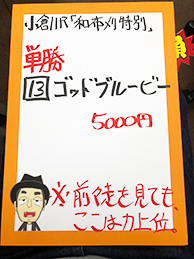 小倉12R「和布刈特別」
単勝
13 ゴッドブルービー
5000円
※前走を見ても、
ここは力上位。